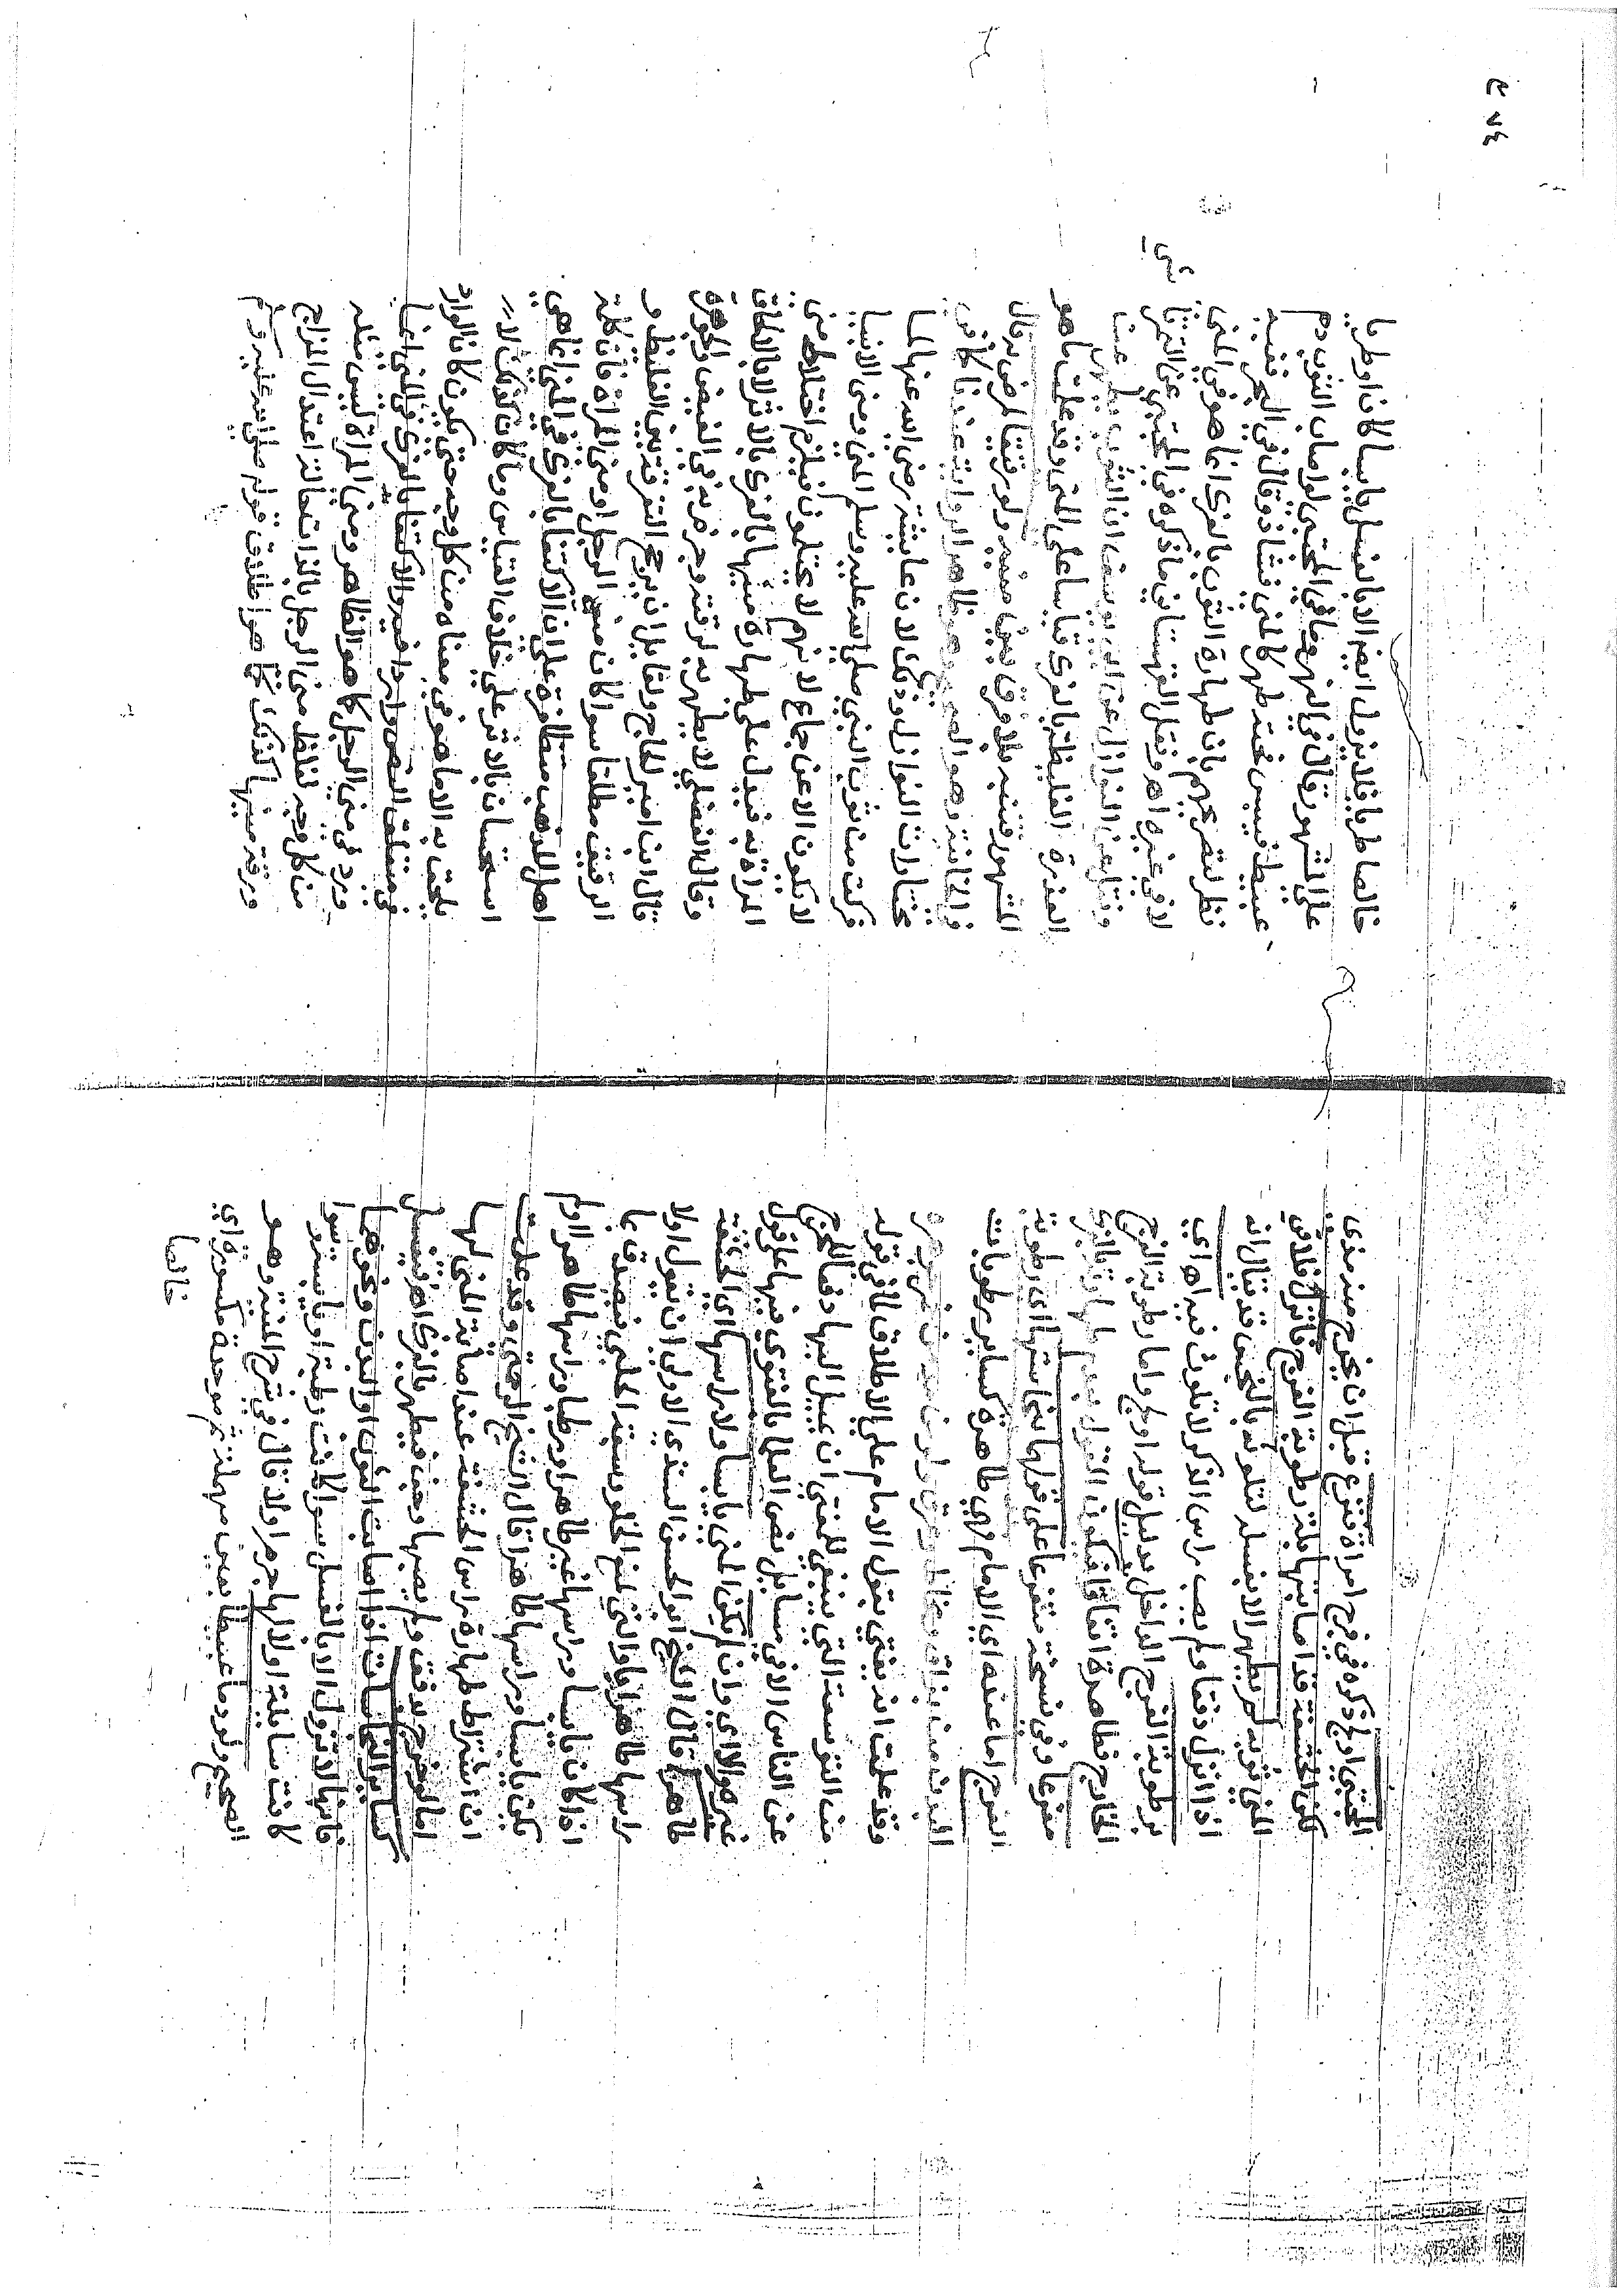 المجتبى اولج ذكره في فرج امراة فنزع قبل ان يخرج منه مذي
لكن الحشفة قد اصابتها بلة رطوبة الفرج فانزل فلاقى
المني ثوبه لم يطهر الا بغسله لتلوثه بالنجس قد يقال انه
اذا انزل دفقا ولم يصب راس الذكر لا تلوث فيه اهـ اي
برطوبة الفرج الداخل بدليل قوله اولج واما رطوبة الفرج
الخارج فطاهرة اتفاقا فيكون القول بعدم بالفرك
مفرعا وفي نسخة متفرعا على قولهما بنجاستها اي رطوبة
الفرج اما عنده اي الامام فهي طاهرة كساير رطوبات
البدن من بزاق ومخاط وعرق
وقد علمت انه يفتي بقول الامام على الاطلاق في قوله
من التوسعة التي ينبغي للمفتي ان يميل اليها للحرج
عن الناس الا في مسايل نص العلما بالفتوى فيها على قول
غيره والا اي وان لم يكن المني يابسا ولا راسها اي الحشفة
طاهرا قال الشيخ ابو الحسن السندي الاولى ان يقول اولا
راسها طاهر لمنع الخلو وسبقه الحلبي فيصدق بما
اذا كان يابسا وراسها غير طاهر او رطبا وراسها طاهر او لم
يكن يابسا وراسها طاهرا قال الشيخ الرحمتي وقد علمت
ان اشتراط طهارة راس الحشفة عند اصابة المني لها
اما لو خرج بدفق ولم يصبها فيطهر بالفرك اهـ فيغسل
كساير النجاسات اذا اصابت الثوب او البدن ونحوهما
فانها لا تزول الا بالغسل سوا كانت رطبة او يابسة وسوا
كانت سايلة او لا لها جرم او لا وقال في شرح المنية وهو
الصحيح ولو دما عبيطا بعين مهملة ثم موحدة مكسورة اي
خالصا
خالصا طريا فلا يزول ايضا الا بالغسل يابسا كان او طريا
على المشهور قال في النهر وما في المجتبى لو اصاب الثوب دم
عبيط فيبس فحته طهر كالمني فشاذ وقال في البحر فيه
نظر لتصريحهم بان طهارة الثوب بالفرك انما هو في المني
لا في غيره اهـ ونقل القهستاني ما ذكره في المجتبى عن
عن النوازل عن ابي يوسف ان الثوب يطهر عن
العذرة الغليظة بالفرك قياسا على المني وقد علمت ما هو
المشهور فتنبه بلا فرق بين منيه ولو رقيقا لمرض به قال
في الخانية وهو الصحيح وهو ظاهر الرواية عندنا كما في
مختارات النوازل وذلك لان عايشة رضي الله عنها انما
فركت من ثوب النبي صلى الله عليه وسلم المني ومني الانبيا
لا يكون الا عن جماع لانهم لا يحتلمون فيلزم اختلاط مني
المراة به فيدل على طهارة منيها بالفرك بالاثر لا بالالحاق
وقال الفضلي لا يطهر به لرقته وجزم به في الفيض والجوهرة
قال ابن امير الحاج ولقايل ان يرجح التفرقة بين الغليظ و
الرقيق مطلقا سوا كان مني الرجل او مني المراة فان كلمة
اهل المذهب متظافرة على ان الاكتفا بالفرك في المني انما هي
استحسان بالاثر على خلاف القياس وما كان كذلك لا
يلحق به الا ما هو في معناه من كل وجه حتى يكون كان الوارد
في متعلقه النص وارد فيه والاكتفا بالفرك في المني انما
ورد في مني الرجل كما هو الظاهر ومني المراة ليس مثله
من كل وجه لغلظ مني الرجل بالذات حالة اعتدال المزاج
ورقة منيها كذلك كما هو اطلاق قوله صلى الله عليه وسلم